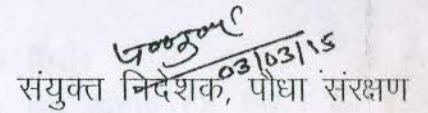 03/03/15
संयुक्त निदेशक, पौधा संरक्षण